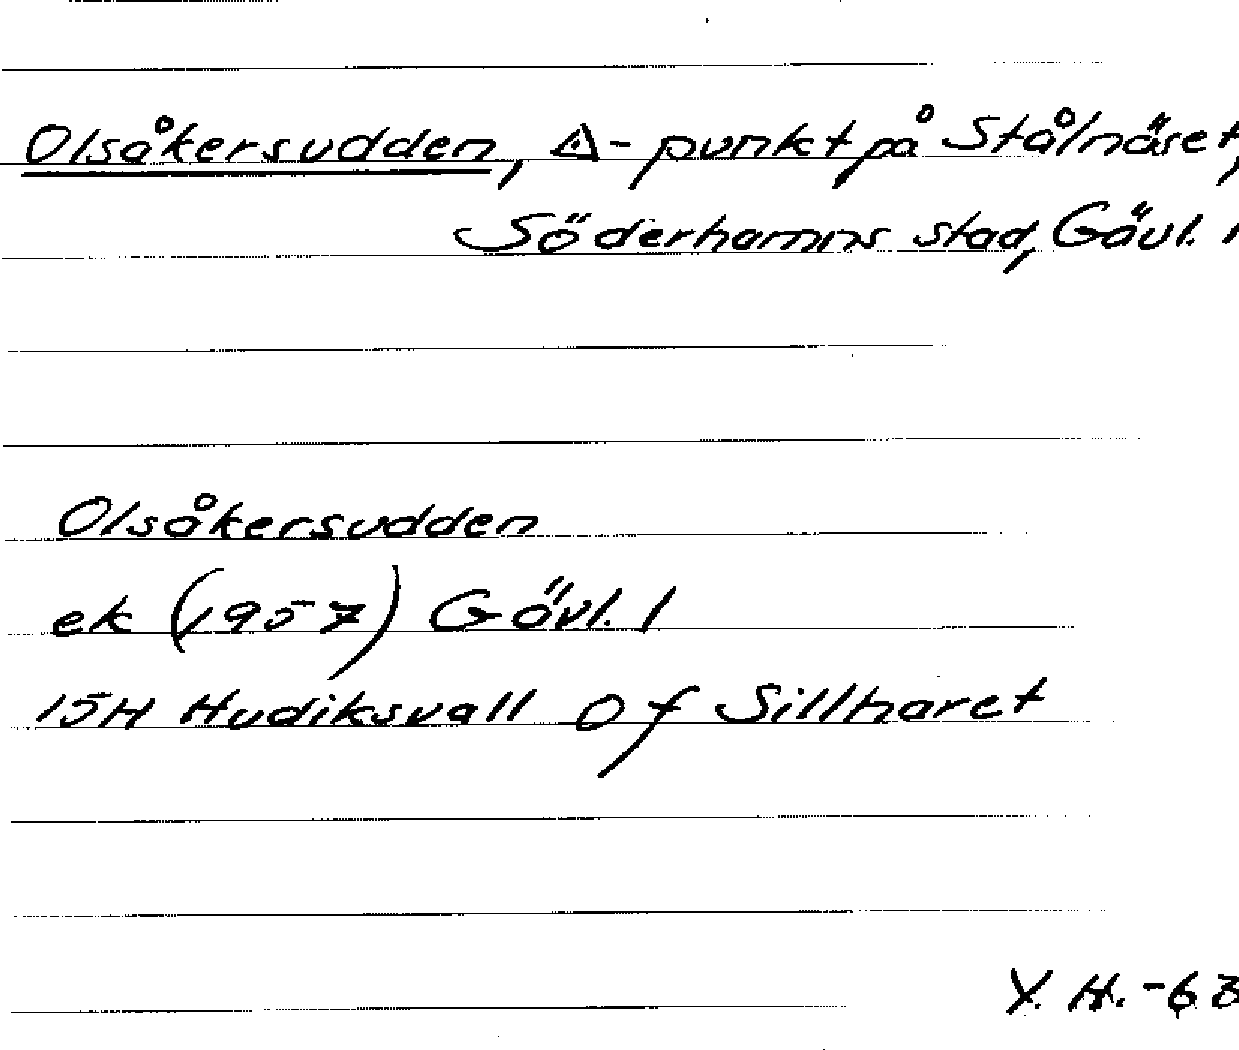 Olsåkersudden, △-punkt på Stålnäset,
Söderhamns stad, Gävl. l
Olsåkersudden
ek (1957) Gävl. l
15H Hudiksvall 0 f Sillharet
Y. H. -63